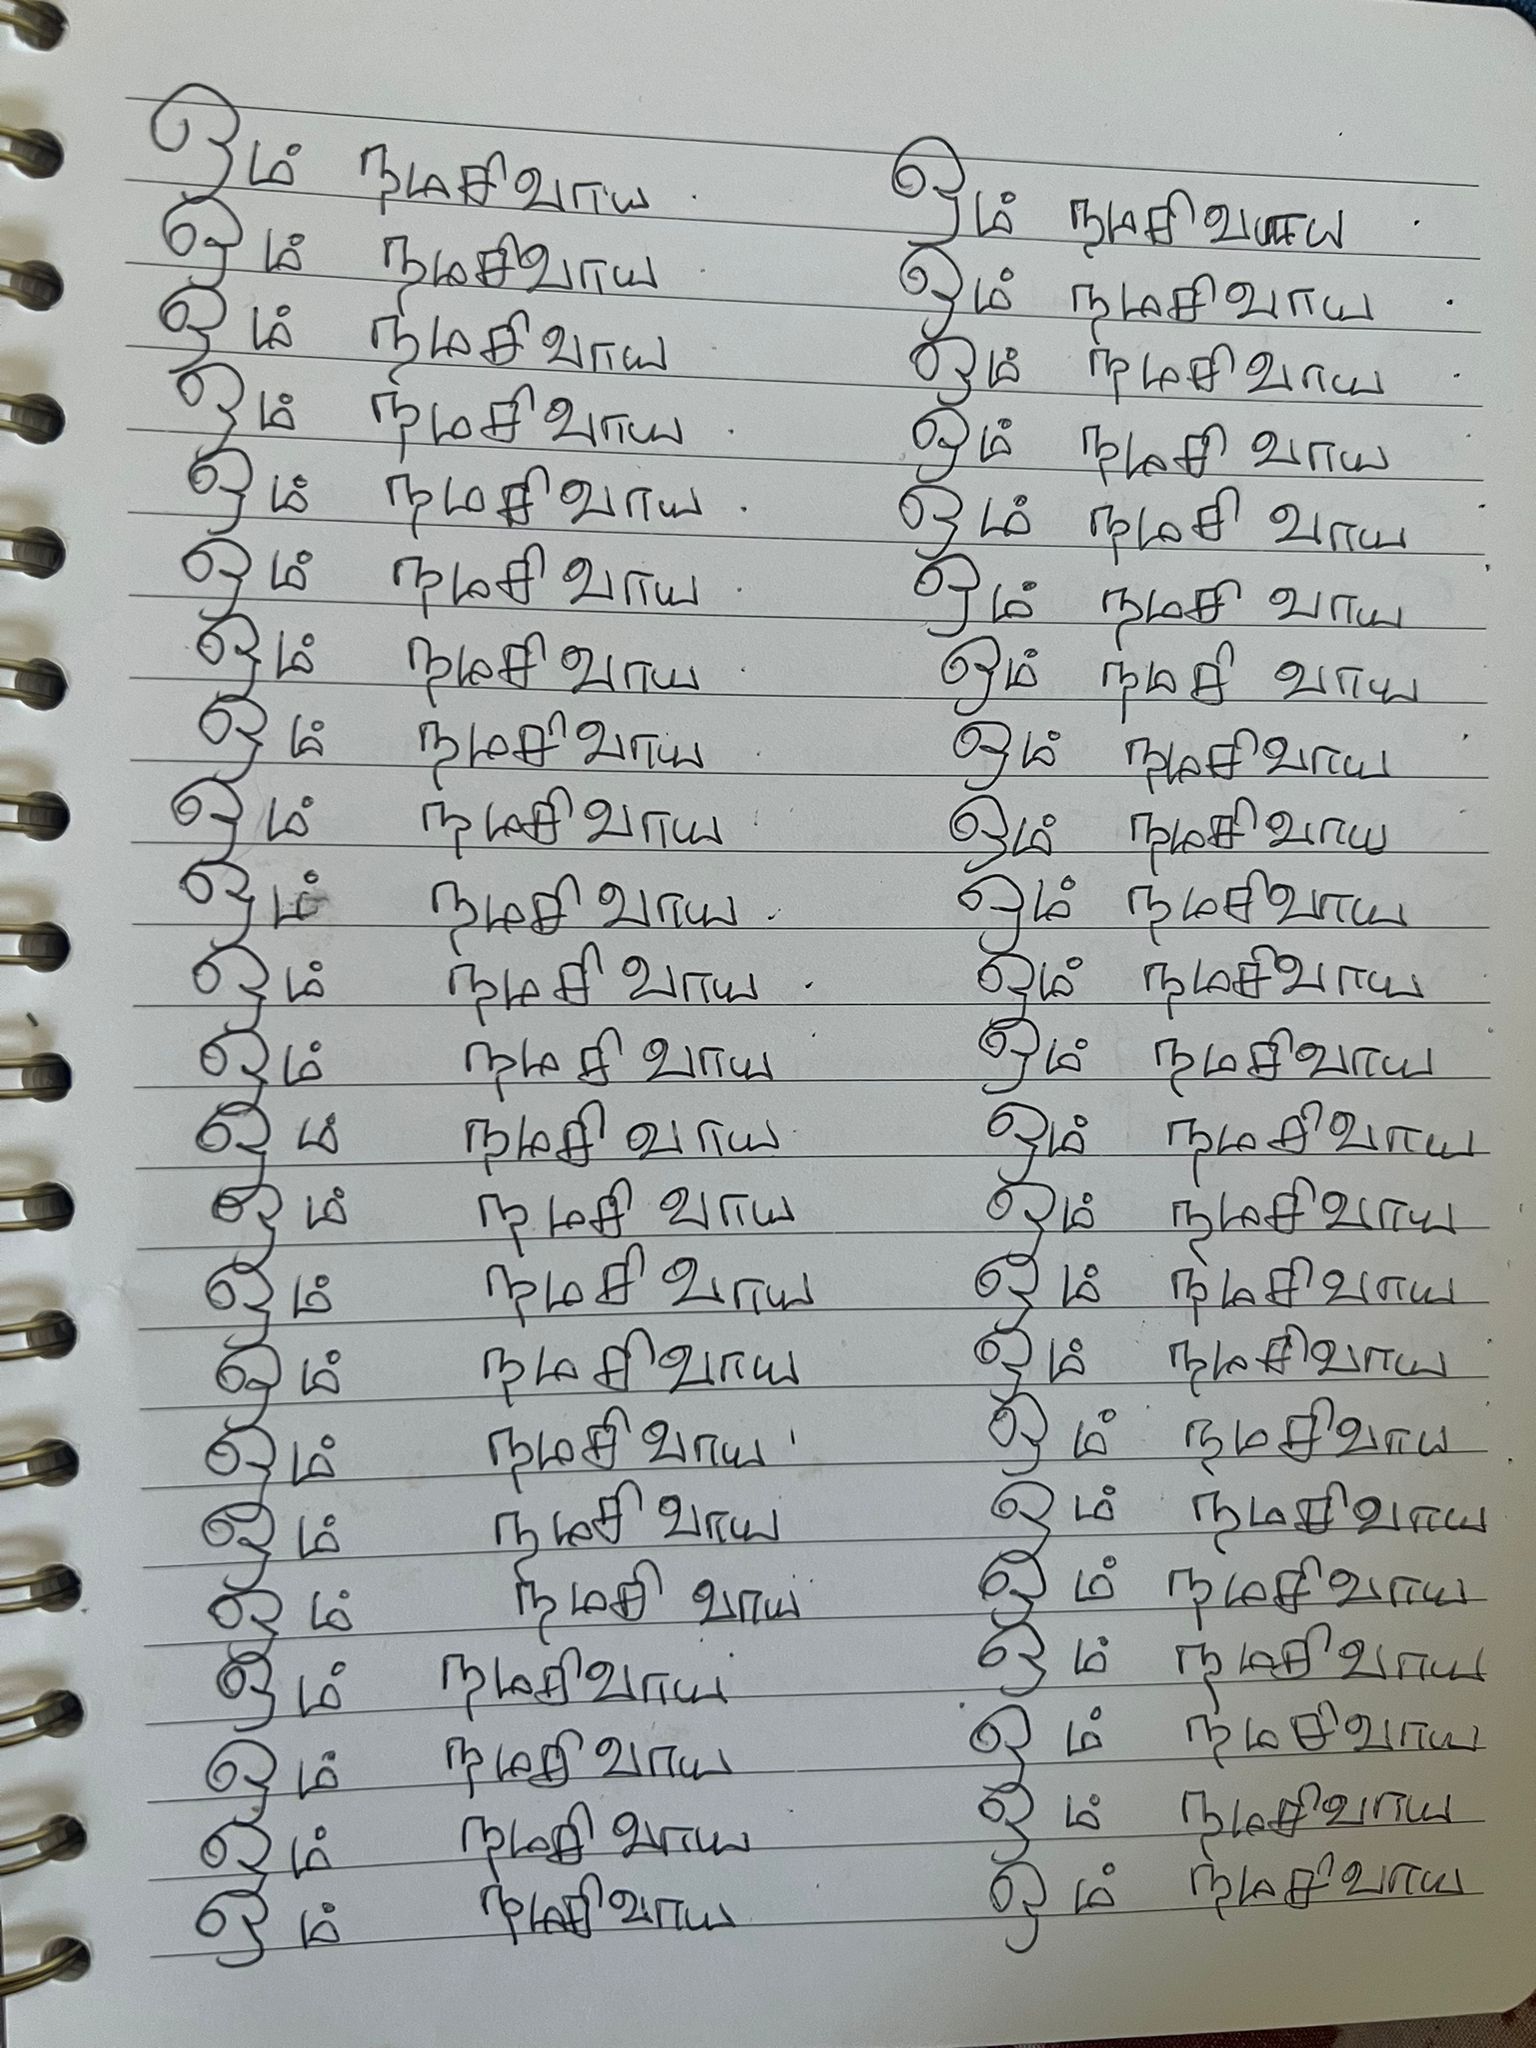 ஓம் நமசிவாய ஓம் நமசிவாய
ஓம் நமசிவாய ஓம் நமசிவாய
ஓம் நமசிவாய ஓம் நமசிவாய
ஓம் நமசிவாய ஓம் நமசிவாய
ஓம் நமசிவாய ஓம் நமசிவாய
ஓம் நமசிவாய ஓம் நமசிவாய
ஓம் நமசிவாய ஓம் நமசிவாய
ஓம் நமசிவாய ஓம் நமசிவாய
ஓம் நமசிவாய ஓம் நமசிவாய
ஓம் நமசிவாய ஓம் நமசிவாய
ஓம் நமசிவாய ஓம் நமசிவாய
ஓம் நமசிவாய ஓம் நமசிவாய
ஓம் நமசிவாய ஓம் நமசிவாய
ஓம் நமசிவாய ஓம் நமசிவாய
ஓம் நமசிவாய ஓம் நமசிவாய
ஓம் நமசிவாய ஓம் நமசிவாய
ஓம் நமசிவாய ஓம் நமசிவாய
ஓம் நமசிவாய ஓம் நமசிவாய
ஓம் நமசிவாய ஓம் நமசிவாய
ஓம் நமசிவாய ஓம் நமசிவாய
ஓம் நமசிவாய ஓம் நமசிவாய
ஓம் நமசிவாய ஓம் நமசிவாய
ஓம் நமசிவாய ஓம் நமசிவாய